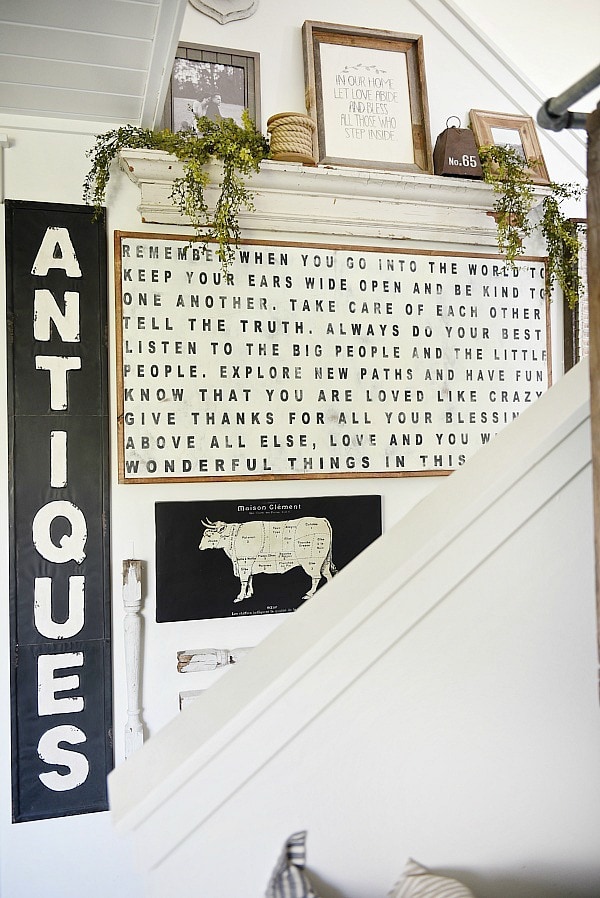 IN OUR HOME
LET LOVE ABIDE
AND BLESS
ALL THOSE WHO
STEP INSIDE
No.65
ANTIQUES
REMEMBER WHEN YOU GO INTO THE WORLD TO
KEEP YOUR EARS WIDE OPEN AND BE KIND TO
ONE ANOTHER. TAKE CARE OF EACH OTHER
TELL THE TRUTH. ALWAYS DO YOUR BEST
LISTEN TO THE BIG PEOPLE AND THE LITTLE
PEOPLE. EXPLORE NEW PATHS AND HAVE FUN
KNOW THAT YOU ARE LOVED LIKE CRAZY
GIVE THANKS FOR ALL YOUR BLESSIN
ABOVE ALL ELSE, LOVE AND YOU W
WONDERFUL THINGS IN THIS
Maison Clément